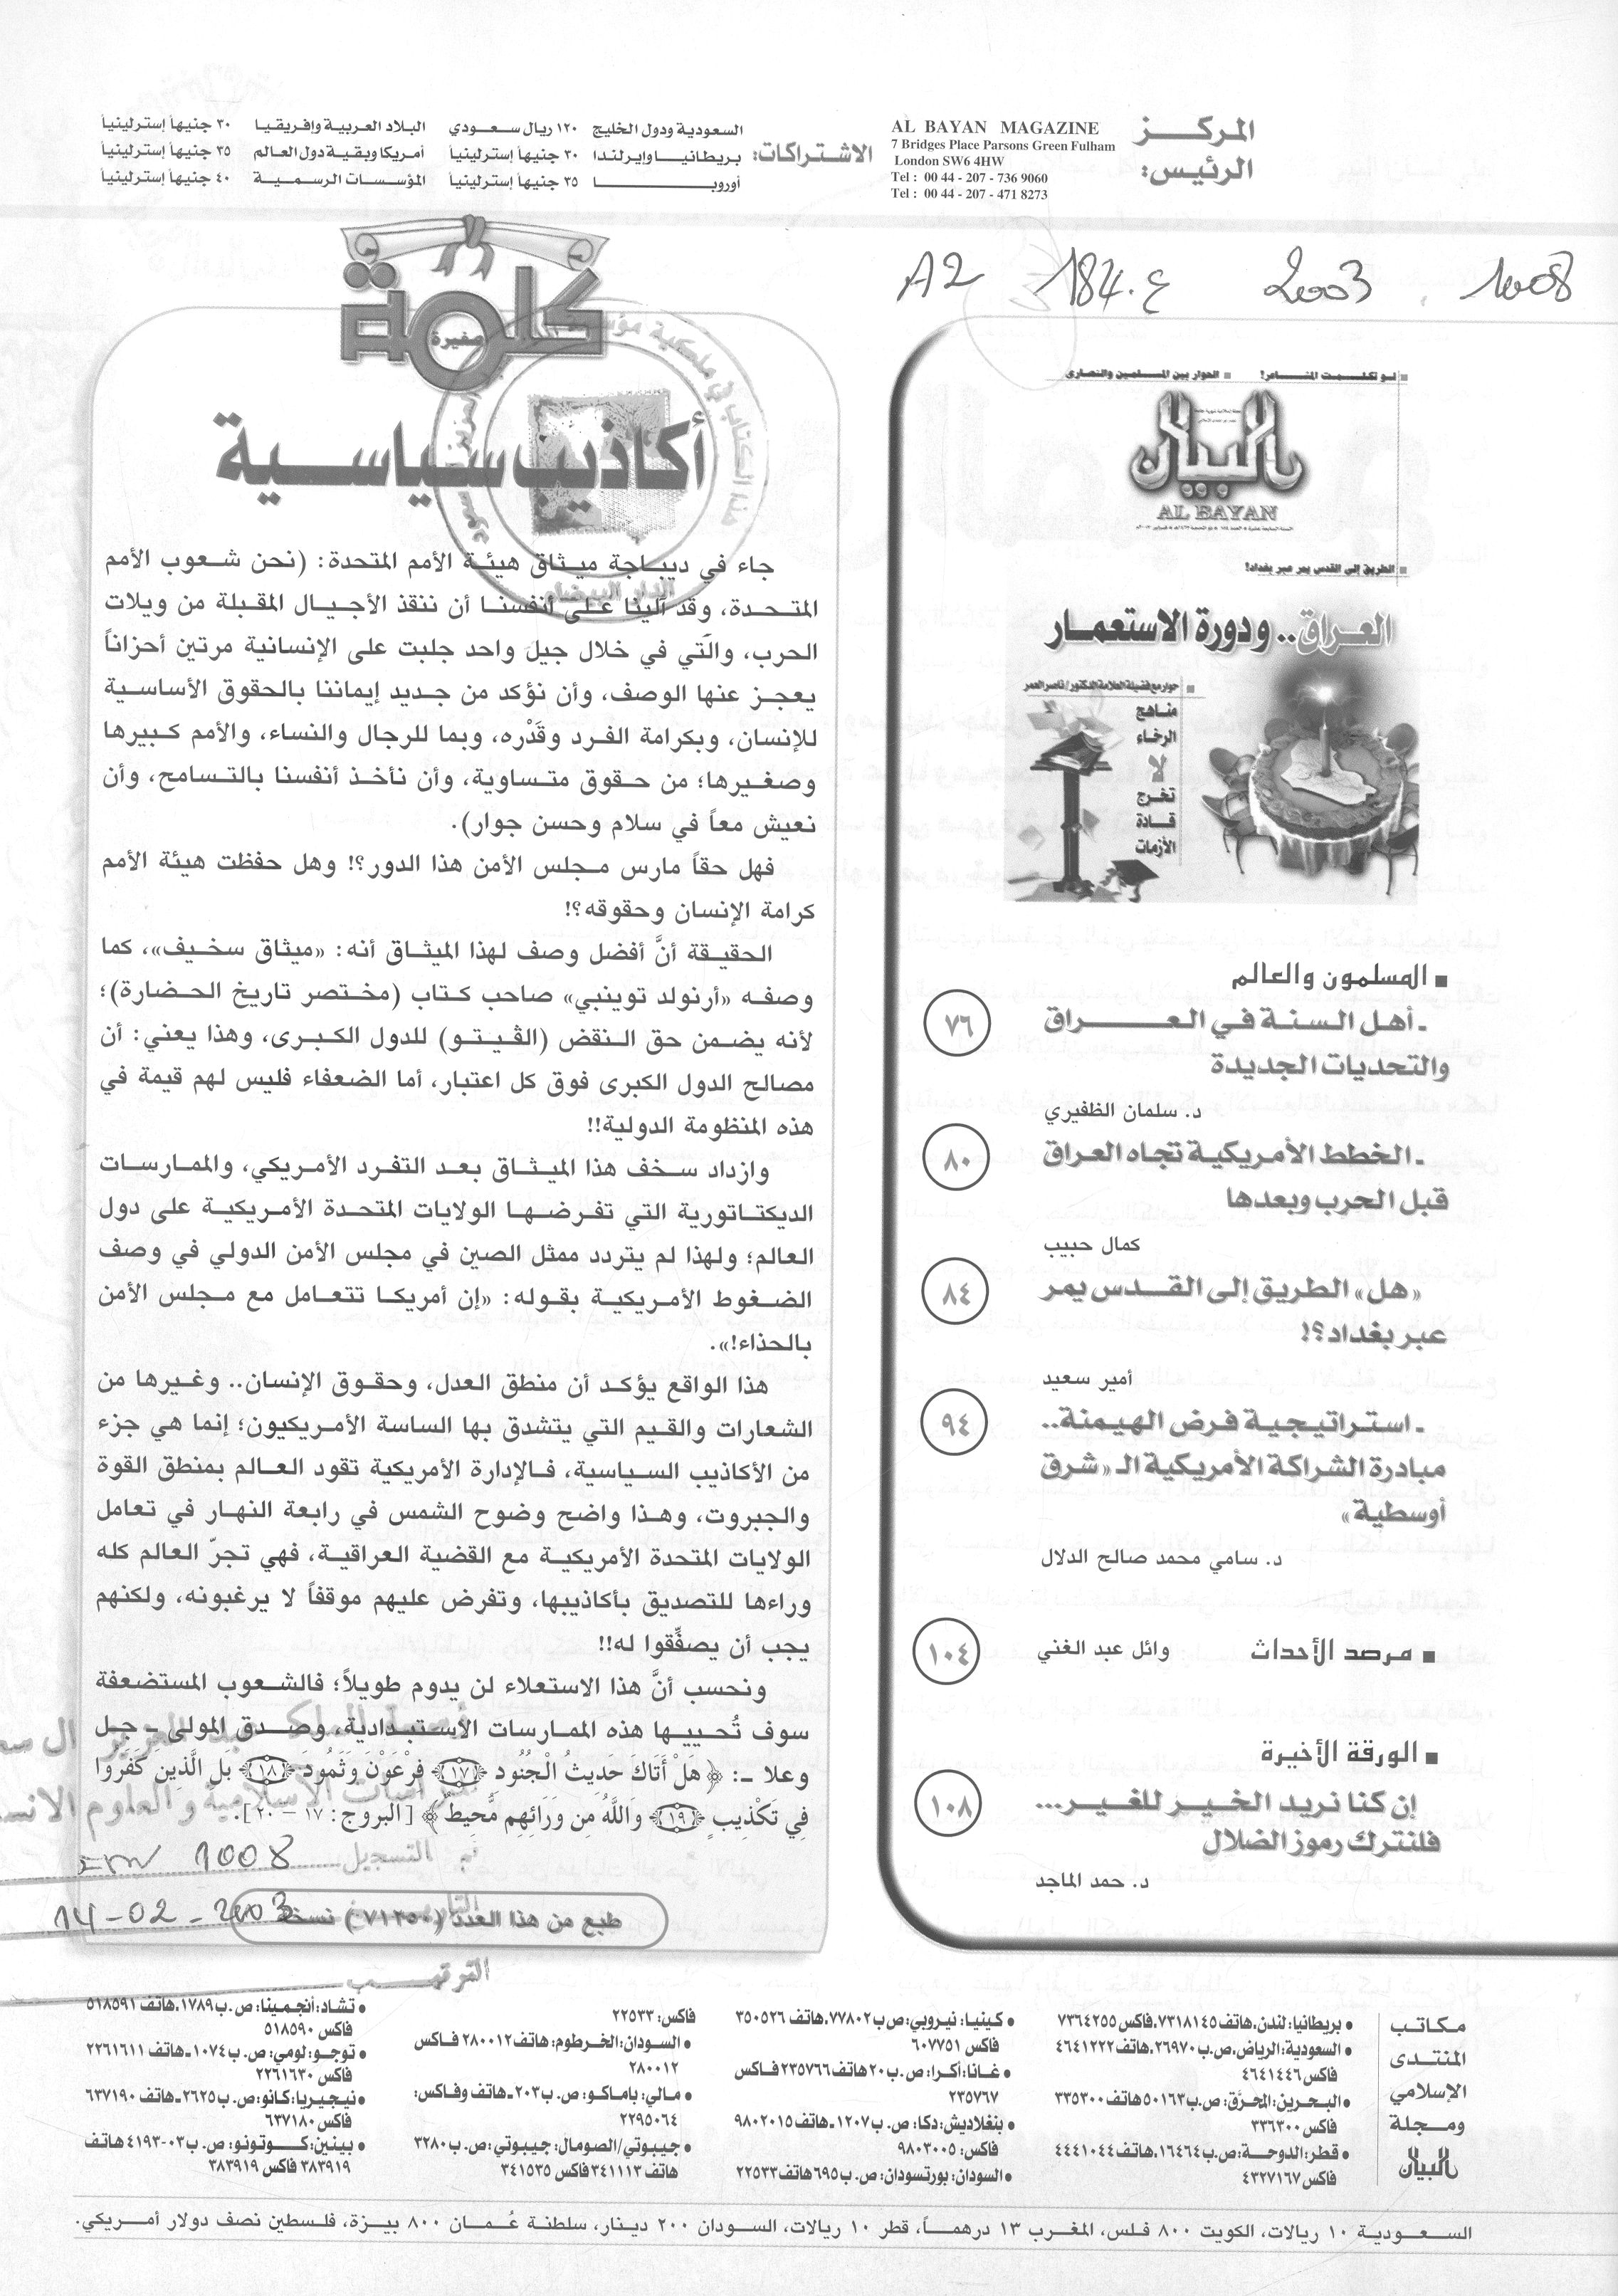 المركز
الرئيس:
AL BAYAN MAGAZINE
7 Bridges Place Parsons Green Fulham
London SW6 4HW
Tel : 00 44 - 207 - 736 9060
Tel : 00 44 - 207 - 471 8273
الاشتراكات:
السعودية ودول الخليج ١٢٠ ريال سعودي
بريطانيا وإيرلندا ٣٠ جنيهاً إسترلينياً
أوروبا ٣٥ جنيهاً إسترلينياً
البلاد العربية وإفريقيا ٣٠ جنيهاً إسترلينياً
أمريكا وبقية دول العالم ٣٥ جنيهاً إسترلينياً
المؤسسات الرسمية ٤٠ جنيهاً إسترلينياً
A2 184.ع 2003 1008
لو تكلمت المشاعر! ■ الحوار بين المسلمين والنصارى
البيان
AL BAYAN
الطريق إلى القدس يمر عبر بغداد!
العراق.. ودورة الاستعمار
حوار مع فضيلة العلامة الدكتور/ ناصر العمر
مناهج
الرخاء
لا
تخرج
قادة
الأزمات
■ المسلمون والعالم
ـ أهل السنة في العراق ٧٦
والتحديات الجديدة
د. سلمان الظفيري
ـ الخطط الأمريكية تجاه العراق ٨٠
قبل الحرب وبعدها
كمال حبيب
«هل» الطريق إلى القدس يمر ٨٤
عبر بغداد؟!
أمير سعيد
ـ استراتيجية فرض الهيمنة.. ٩٤
مبادرة الشراكة الأمريكية الـ «شرق
أوسطية»
د. سامي محمد صالح الدلال
■ مرصد الأحداث وائل عبد الغني ١٠٤
■ الورقة الأخيرة
إن كنا نريد الخير للغير... ١٠٨
فلنترك رموز الضلال
د. حمد الماجد
كلمة
صغيرة
أكاذيب سياسية
جاء في ديباجة ميثاق هيئة الأمم المتحدة: (نحن شعوب الأمم
المتحدة، وقد آلينا على أنفسنا أن ننقذ الأجيال المقبلة من ويلات
الحرب، والتي في خلال جيل واحد جلبت على الإنسانية مرتين أحزاناً
يعجز عنها الوصف، وأن نؤكد من جديد إيماننا بالحقوق الأساسية
للإنسان، وبكرامة الفرد وقَدْره، وبما للرجال والنساء، والأمم كبيرها
وصغيرها؛ من حقوق متساوية، وأن نأخذ أنفسنا بالتسامح، وأن
نعيش معاً في سلام وحسن جوار).
فهل حقاً مارس مجلس الأمن هذا الدور؟! وهل حفظت هيئة الأمم
كرامة الإنسان وحقوقه؟!
الحقيقة أنَّ أفضل وصف لهذا الميثاق أنه: «ميثاق سخيف»، كما
وصفه «أرنولد توينبي» صاحب كتاب (مختصر تاريخ الحضارة)؛
لأنه يضمن حق النقض (الڤيتو) للدول الكبرى، وهذا يعني: أن
مصالح الدول الكبرى فوق كل اعتبار، أما الضعفاء فليس لهم قيمة في
هذه المنظومة الدولية!!
وازداد سخف هذا الميثاق بعد التفرد الأمريكي، والممارسات
الديكتاتورية التي تفرضها الولايات المتحدة الأمريكية على دول
العالم؛ ولهذا لم يتردد ممثل الصين في مجلس الأمن الدولي في وصف
الضغوط الأمريكية بقوله: «إن أمريكا تتعامل مع مجلس الأمن
بالحذاء!».
هذا الواقع يؤكد أن منطق العدل، وحقوق الإنسان.. وغيرها من
الشعارات والقيم التي يتشدق بها الساسة الأمريكيون؛ إنما هي جزء
من الأكاذيب السياسية، فالإدارة الأمريكية تقود العالم بمنطق القوة
والجبروت، وهذا واضح وضوح الشمس في رابعة النهار في تعامل
الولايات المتحدة الأمريكية مع القضية العراقية، فهي تجرّ العالم كله
وراءها للتصديق بأكاذيبها، وتفرض عليهم موقفاً لا يرغبونه، ولكنهم
يجب أن يصفِّقوا له!!
ونحسب أنَّ هذا الاستعلاء لن يدوم طويلاً؛ فالشعوب المستضعفة
سوف تُحييها هذه الممارسات الاستبدادية، وصدق المولى ـ جل
وعلا ـ: ﴿هَلْ أَتَاكَ حَدِيثُ الْجُنُودِ (١٧) فِرْعَوْنَ وَثَمُودَ (١٨) بَلِ الَّذِينَ كَفَرُوا
فِي تَكْذِيبٍ (١٩) وَاللَّهُ مِن وَرَائِهِم مُّحِيطٌ﴾ [البروج: ١٧ - ٢٠].
التسجيل 1008
14-02-2003
طبع من هذا العدد (٧١٢٥٠) نسخة
الترتيب
مكاتب
المنتدى
الإسلامي
ومجلة
البيان
● بريطانيا: لندن، هاتف ٧٣١٨١٤٥، فاكس ٧٣٦٤٢٥٥
● السعودية: الرياض، ص.ب ٢٦٩٧٠، هاتف ٤٦٤١٢٢٢
فاكس ٤٦٤١٤٤٦
● البحرين: المحرّق: ص.ب ٥٠١٦٣ هاتف ٣٣٥٣٠٠
فاكس ٣٣٦٣٠٠
● قطر: الدوحة: ص.ب ١٦٤٦٤، هاتف ٤٤٤١٠٤٤
فاكس ٤٣٢٧١٦٧
● كينيا: نيروبي: ص ب ٧٧٨٠٢، هاتف ٣٥٠٥٢٦
فاكس ٦٠٧٧٥١
● غانا: أكرا: ص.ب ٢٠ هاتف ٢٣٥٧٦٦ فاكس
٢٣٥٧٦٧
● بنغلاديش: دكا: ص.ب ١٢٠٧ـ هاتف ٩٨٠٢٠١٥
فاكس: ٩٨٠٣٠٠٥
● السودان: بورتسودان: ص.ب ٦٩٥ هاتف ٢٢٥٣٣
فاكس: ٢٢٥٣٣
● السودان: الخرطوم: هاتف ٢٨٠٠١٢ فاكس
٢٨٠٠١٢
● مالي: باماكو: ص.ب ٢٠٣ـ هاتف وفاكس:
٢٢٩٥٠٦٤
● جيبوتي/الصومال: جيبوتي: ص.ب ٣٢٨٠
هاتف ٣٤١١١٣ فاكس ٣٤١٥٣٥
● تشاد: أنجمينا: ص.ب ١٧٨٩، هاتف ٥١٨٥٩١
فاكس ٥١٨٥٩٠
● توجو: لومي: ص.ب ١٠٧٤ـ هاتف ٢٢٦١٦١١
فاكس ٢٢٦١٦٣٠
● نيجيريا: كانو: ص.ب ٢٦٢٥ـ هاتف ٦٣٧١٩٠
فاكس ٦٣٧١٨٠
● بينين: كوتونو: ص.ب ٠٣-٤١٩٣ هاتف
٣٨٣٩١٩ فاكس ٣٨٣٩١٩
السعودية ١٠ ريالات، الكويت ٨٠٠ فلس، المغرب ١٣ درهماً، قطر ١٠ ريالات، السودان ٢٠٠ دينار، سلطنة عُمان ٨٠٠ بيزة، فلسطين نصف دولار أمريكي.